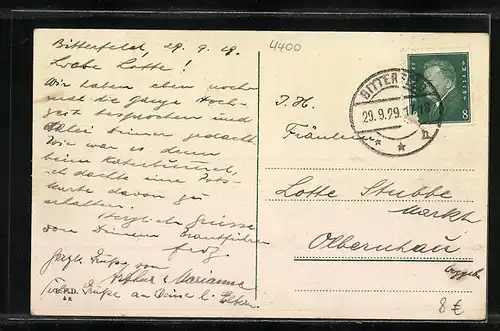 Bitterfeld, 29. 9. 29.
Liebe Lotte!
Wir haben eben noch
mal die ganze Hoch-
zeit besprochen und
dabei Deiner gedacht.
Wie war es denn
beim Katerbummel,
ich dachte eine
Karte davon zu
erhalten.
Herzliche Grüsse
von Deinem Brautführer
Herzl. Grüße von
Arthur u. Marianne
Viele Grüße an Deine l. Eltern.
4400
BITTERFELD
29.9.29.
8
Fräulein
Lotte Stubbe
Markt
Olbernhau
8 €